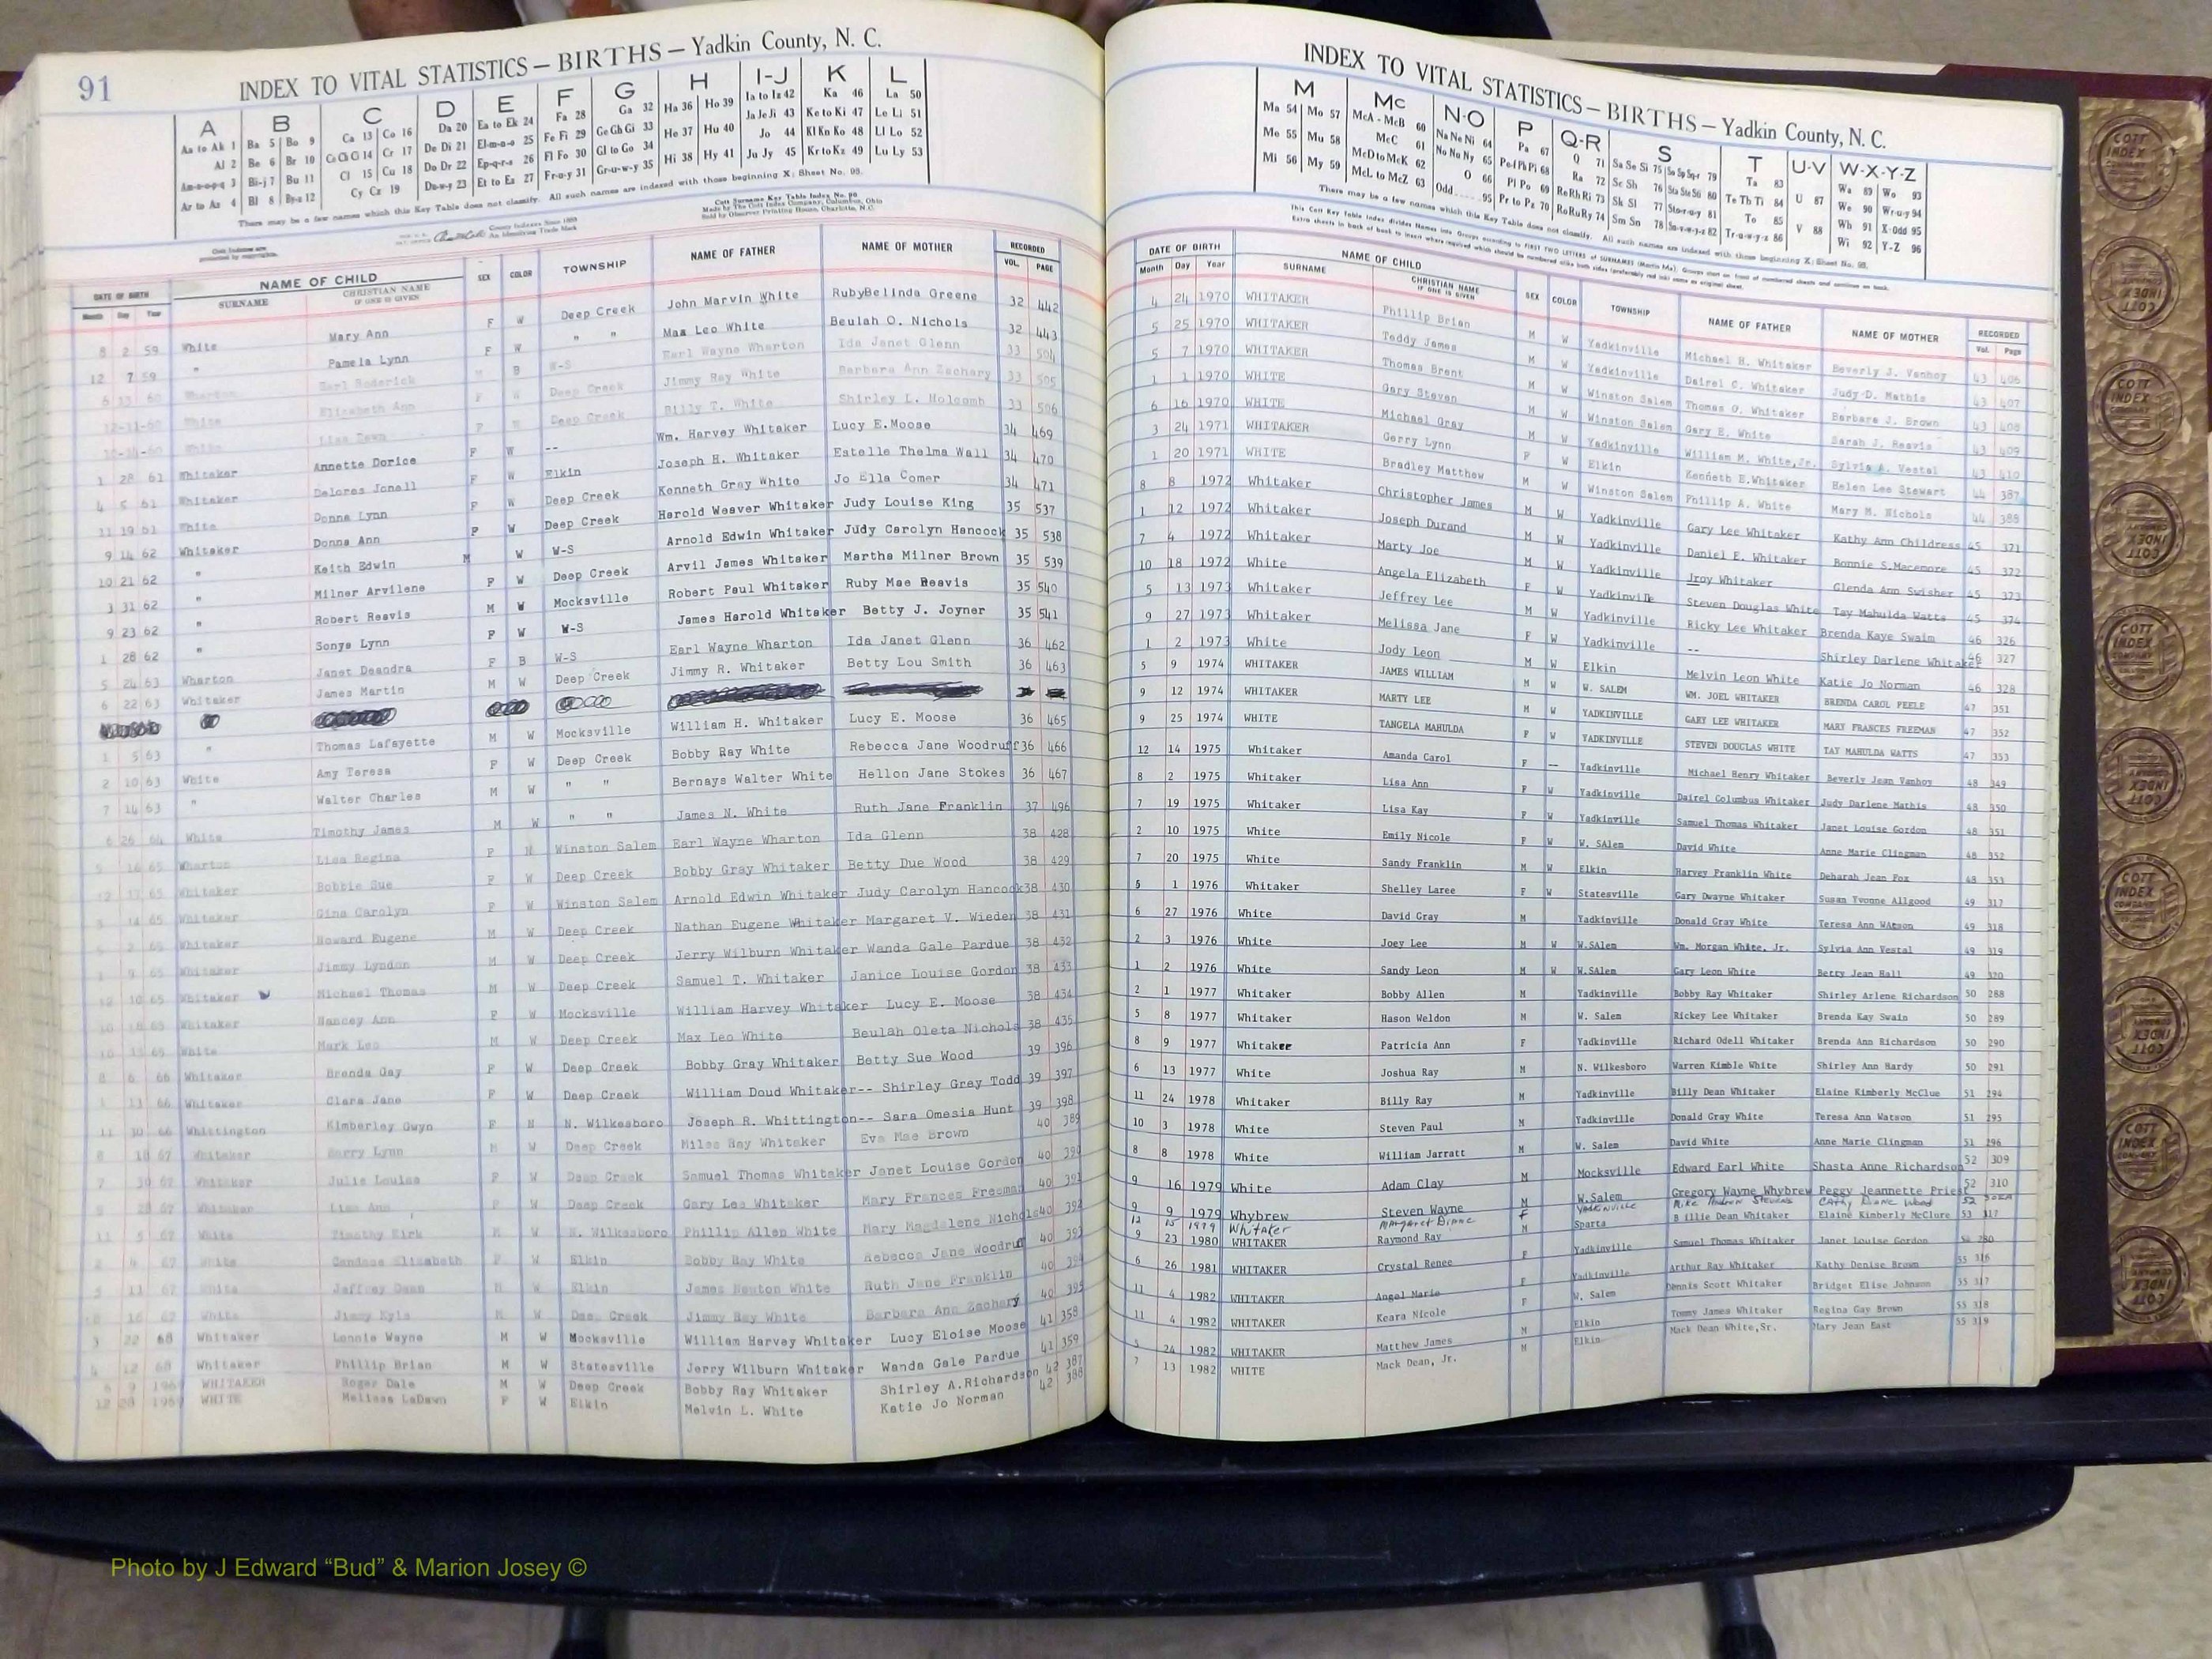 91
INDEX TO VITAL STATISTICS — BIRTHS — Yadkin County, N. C.
A B C D E F G H I-J K L
Aa to Ak 1 Ba 5 Bo 9 Ca 13 Co 16 Da 20 Ea to Ek 24 Fa 28 Ga 32 Ha 36 Ho 39 Ia to Iz 42 Ka 46 La 50
Al 2 Be 6 Br 10 Ce Ch Ci 14 Cr 17 De Di 21 El-m-n-o 25 Fe Fi 29 Ge Gh Gi 33 He 37 Hu 40 Ja Je Ji 43 Ke to Ki 47 Le Li 51
Am-n-o-p-q 3 Bi-j 7 Bu 11 Cl 15 Cu 18 Do Dr 22 Ep-q-r-s 26 Fl Fo 30 Gl to Go 34 Hi 38 Hy 41 Jo 44 Kl Kn Ko 48 Ll Lo 52
Ar to Az 4 Bl 8 By-z 12 Cy Cz 19 Du-w-y 23 Et to Ez 27 Fr-u-y 31 Gr-u-w-y 35 Ju Jy 45 Kr to Kz 49 Lu Ly 53
There may be a few names which this Key Table does not classify. All such names are indexed with those beginning X; Sheet No. 95.
DATE OF BIRTH NAME OF CHILD SEX COLOR TOWNSHIP NAME OF FATHER NAME OF MOTHER RECORDED
Month Day Year SURNAME CHRISTIAN NAME IF ONE IS GIVEN VOL. PAGE
8 2 59 White Mary Ann F W Deep Creek John Marvin White RubyBelinda Greene 32 442
12 7 59 " Pamela Lynn F W " " Max Leo White Beulah O. Nichols 32 443
60 Wharton Earl Roderick M B W-S Earl Wayne Wharton Ida Janet Glenn 33 504
White Elizabeth Ann F W Deep Creek Jimmy Ray White Barbara Ann Zachary 33 505
White F Deep Creek Billy T. White Shirley L. Holcomb 33 506
1 28 61 Whitaker Annette Dorice F W -- Wm. Harvey Whitaker Lucy E.Moose 34 469
4 5 61 Whitaker Delores Jonell F W Elkin Joseph H. Whitaker Estelle Thelma Wall 34 470
11 19 61 White Donna Lynn F W Deep Creek Kenneth Gray White Jo Ella Comer 34 471
9 14 62 Whitaker Donna Ann F W Deep Creek Harold Weaver Whitaker Judy Louise King 35 537
10 21 62 " Keith Edwin M W W-S Arnold Edwin Whitaker Judy Carolyn Hancock 35 538
3 31 62 " Milner Arvilene F W Deep Creek Arvil James Whitaker Martha Milner Brown 35 539
9 23 62 " Robert Reavis M W Mocksville Robert Paul Whitaker Ruby Mae Reavis 35 540
1 28 62 " Sonya Lynn F W W-S James Harold Whitaker Betty J. Joyner 35 541
5 24 63 Wharton Janet Deandra F B W-S Earl Wayne Wharton Ida Janet Glenn 36 462
6 22 63 Whitaker James Martin M W Deep Creek Jimmy R. Whitaker Betty Lou Smith 36 463
1 5 63 " Thomas Lafayette M W Mocksville William H. Whitaker Lucy E. Moose 36 465
2 10 63 White Amy Teresa F W Deep Creek Bobby Ray White Rebecca Jane Woodruff 36 466
7 14 63 " Walter Charles M W " " Bernays Walter White Hellon Jane Stokes 36 467
6 26 64 White Timothy James M W " " James N. White Ruth Jane Franklin 37 496
5 16 65 Wharton Lisa Regina F N Winston Salem Earl Wayne Wharton Ida Glenn 38 428
12 65 Whitaker Bobbie Sue F W Deep Creek Bobby Gray Whitaker Betty Due Wood 38 429
3 14 65 Whitaker Gina Carolyn F W Winston Salem Arnold Edwin Whitaker Judy Carolyn Hancock 38 430
2 65 Whitaker Howard Eugene M W Deep Creek Nathan Eugene Whitaker Margaret V. Wieden 38 431
1 9 65 Whitaker Jimmy Lyndon M W Deep Creek Jerry Wilburn Whitaker Wanda Gale Pardue 38 432
12 10 65 Whitaker Michael Thomas M W Deep Creek Samuel T. Whitaker Janice Louise Gordon 38 433
65 Whitaker Nancey Ann F W Mocksville William Harvey Whitaker Lucy E. Moose 38 434
65 White Mark Leo M W Deep Creek Max Leo White Beulah Oleta Nichols 38 435
8 6 66 Whitaker Brenda Gay F W Deep Creek Bobby Gray Whitaker Betty Sue Wood 39 396
1 13 66 Whitaker Clara Jane F W Deep Creek William Doud Whitaker-- Shirley Gray Todd 39 397
11 30 66 Whittington Kimberley Gwyn F N N. Wilkesboro Joseph R. Whittington-- Sara Omesia Hunt 39 398
8 18 67 Whitaker Barry Lynn M W Deep Creek Miles Ray Whitaker Eva Mae Brown 40 389
7 30 67 Whitaker Julie Louise F W Deep Creek Samuel Thomas Whitaker Janet Louise Gordon 40 390
28 67 Whitaker Lisa Ann F W Deep Creek Gary Lee Whitaker Mary Frances Freeman 40 391
11 5 67 White Timothy Kirk M W N. Wilkesboro Phillip Allen White Mary Magdalene Nichols 40 392
67 White Candace Elizabeth F W Elkin Bobby Ray White Rebecca Jane Woodruff 40 393
5 11 67 White Jeffrey Dean M W Elkin James Newton White Ruth Jane Franklin 40 394
16 67 White Jimmy Kyle M W Deep Creek Jimmy Ray White Barbara Ann Zachary 40 395
3 22 68 Whitaker Lonnie Wayne M W Mocksville William Harvey Whitaker Lucy Eloise Moose 41 358
4 12 68 Whitaker Phillip Brian M W Statesville Jerry Wilburn Whitaker Wanda Gale Pardue 41 359
6 9 1969 WHITAKER Roger Dale M W Deep Creek Bobby Ray Whitaker Shirley A.Richardson 42 387
12 28 1969 WHITE Melissa LaDawn F W Elkin Melvin L. White Katie Jo Norman 42 388
INDEX TO VITAL STATISTICS — BIRTHS — Yadkin County, N. C.
M Mc N-O P Q-R S T U-V W-X-Y-Z
Ma 54 Mo 57 McA - McB 60 Na Ne Ni 64 Pa 67 Q 71 Sa Se Si 75 So Sp Sq-r 79 Ta 83 U 87 Wa 89 Wo 93
Me 55 Mu 58 McC 61 No Nu Ny 65 Pe-f Ph Pi 68 Ra 72 Sc Sh 76 Sta Ste Sti 80 Te Th Ti 84 V 88 We 90 Wr-u-y 94
Mi 56 My 59 McD to McK 62 O 66 Pl Po 69 Re Rh Ri 73 Sk Sl 77 Sto-r-u-y 81 To 85 Wh 91 X-Odd 95
McL to McZ 63 Odd 95 Pr to Pz 70 Ro Ru Ry 74 Sm Sn 78 Su-v-w-y-z 82 Tr-u-w-y-z 86 Wi 92 Y-Z 96
There may be a few names which this Key Table does not classify. All such names are indexed with those beginning X; Sheet No. 95.
DATE OF BIRTH NAME OF CHILD SEX COLOR TOWNSHIP NAME OF FATHER NAME OF MOTHER RECORDED
Month Day Year SURNAME CHRISTIAN NAME IF ONE IS GIVEN Vol. Page
4 24 1970 WHITAKER Phillip Brian M W Yadkinville Michael H. Whitaker Beverly J. Vanhoy 43 406
5 25 1970 WHITAKER Teddy James M W Yadkinville Dairel C. Whitaker Judy D. Mathis 43 407
5 7 1970 WHITAKER Thomas Brent M W Winston Salem Thomas O. Whitaker Barbara J. Brown 43 408
1 1 1970 WHITE Gary Steven M W Winston Salem Gary E. White Sarah J. Reavis 43 409
6 16 1970 WHITE Michael Gray M W Yadkinville William M. White,Jr. Sylvia A. Vestal 43 410
3 24 1971 WHITAKER Gerry Lynn F W Elkin Kenneth E.Whitaker Helen Lee Stewart 44 387
1 20 1971 WHITE Bradley Matthew M W Winston Salem Phillip A. White Mary M. Nichols 44 388
8 8 1972 Whitaker Christopher James M W Yadkinville Gary Lee Whitaker Kathy Ann Childress 45 371
1 12 1972 Whitaker Joseph Durand M W Yadkinville Daniel E. Whitaker Bonnie S.Macemore 45 372
7 4 1972 Whitaker Marty Joe M W Yadkinville Jroy Whitaker Glenda Ann Swisher 45 373
10 18 1972 White Angela Elizabeth F W Yadkinville Steven Douglas White Tay Mahulda Watts 45 374
5 13 1973 Whitaker Jeffrey Lee M W Yadkinville Ricky Lee Whitaker Brenda Kaye Swaim 46 326
9 27 1973 Whitaker Melissa Jane F W Yadkinville -- Shirley Darlene Whitaker 46 327
1 2 1973 White Jody Leon M W Elkin Melvin Leon White Katie Jo Norman 46 328
5 9 1974 WHITAKER JAMES WILLIAM M W W. SALEM WM. JOEL WHITAKER BRENDA CAROL PEELE 47 351
9 12 1974 WHITAKER MARTY LEE M W YADKINVILLE GARY LEE WHITAKER MARY FRANCES FREEMAN 47 352
9 25 1974 WHITE TANGELA MAHULDA F W YADKINVILLE STEVEN DOUGLAS WHITE TAY MAHULDA WATTS 47 353
12 14 1975 Whitaker Amanda Carol F — Yadkinville Michael Henry Whitaker Beverly Jean Vanhoy 48 349
8 2 1975 Whitaker Lisa Ann F W Yadkinville Dairel Columbus Whitaker Judy Darlene Mathis 48 350
7 19 1975 Whitaker Lisa Kay F W Yadkinville Samuel Thomas Whitaker Janet Louise Gordon 48 351
2 10 1975 White Emily Nicole F W W. SAlem David White Anne Marie Clingman 48 352
7 20 1975 White Sandy Franklin M W Elkin Harvey Franklin White Deharah Jean Fox 48 353
5 1 1976 Whitaker Shelley Laree F W Statesville Gary Dwayne Whitaker Susan Yvonne Allgood 49 317
6 27 1976 White David Gray M Yadkinville Donald Gray White Teresa Ann WAtson 49 318
2 3 1976 White Joey Lee M W W.SAlem Wm. Morgan White, Jr. Sylvia Ann Vestal 49 319
1 2 1976 White Sandy Leon M W W.SAlem Gary Leon White Betty Jean Hall 49 320
2 1 1977 Whitaker Bobby Allen M Yadkinville Bobby Ray Whitaker Shirley Arlene Richardson 50 288
5 8 1977 Whitaker Hason Weldon M W. Salem Rickey Lee Whitaker Brenda Kay Swain 50 289
8 9 1977 Whitaker Patricia Ann F Yadkinville Richard Odell Whitaker Brenda Ann Richardson 50 290
6 13 1977 White Joshua Ray M N. Wilkesboro Warren Kimble White Shirley Ann Hardy 50 291
11 24 1978 Whitaker Billy Ray M Yadkinville Billy Dean Whitaker Elaine Kimberly McClue 51 294
10 3 1978 White Steven Paul M Yadkinville Donald Gray White Teresa Ann Watson 51 295
8 8 1978 White William Jarratt M W. Salem David White Anne Marie Clingman 51 296
9 16 1979 White Adam Clay M Mocksville Edward Earl White Shasta Anne Richardson 52 309
9 9 1979 Whybrew Steven Wayne M W.Salem Gregory Wayne Whybrew Peggy Jeannette Priest 52 310
12 15 1979 Whitaker Margaret Dianne F Yadkinville Mike Andrew Stevens Cathy Diane Wood 52
9 23 1980 WHITAKER Raymond Ray M Sparta Billie Dean Whitaker Elaine Kimberly McClure 53 317
6 26 1981 WHITAKER Crystal Renee F Yadkinville Samuel Thomas Whitaker Janet Louise Gordon 54 280
11 4 1982 WHITAKER Angel Marie F Yadkinville Arthur Ray Whitaker Kathy Denise Brown 55 316
11 4 1982 WHITAKER Keara Nicole F W. Salem Dennis Scott Whitaker Bridget Elise Johnson 55 317
5 24 1982 WHITAKER Matthew James M Elkin Tommy James Whitaker Regina Gay Brown 55 318
7 13 1982 WHITE Mack Dean, Jr. M Elkin Mack Dean White,Sr. Mary Jean East 55 319
COTT INDEX COMPANY
Photo by J Edward “Bud” & Marion Josey ©